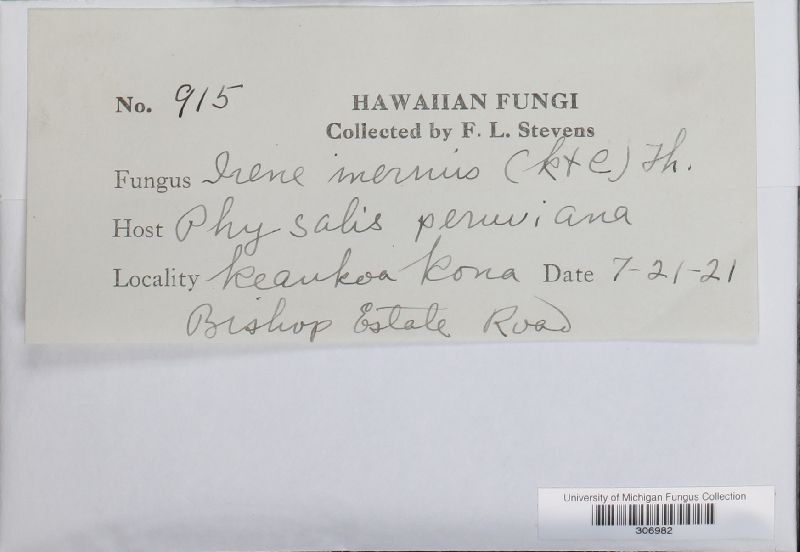 No. 915
HAWAIIAN FUNGI
Collected by F. L. Stevens
Fungus Irene inermis (K+C) Th.
Host Physalis peruviana
Locality Keaukoa Kona Date 7-21-21
Bishop Estate Road
University of Michigan Fungus Collection
306982